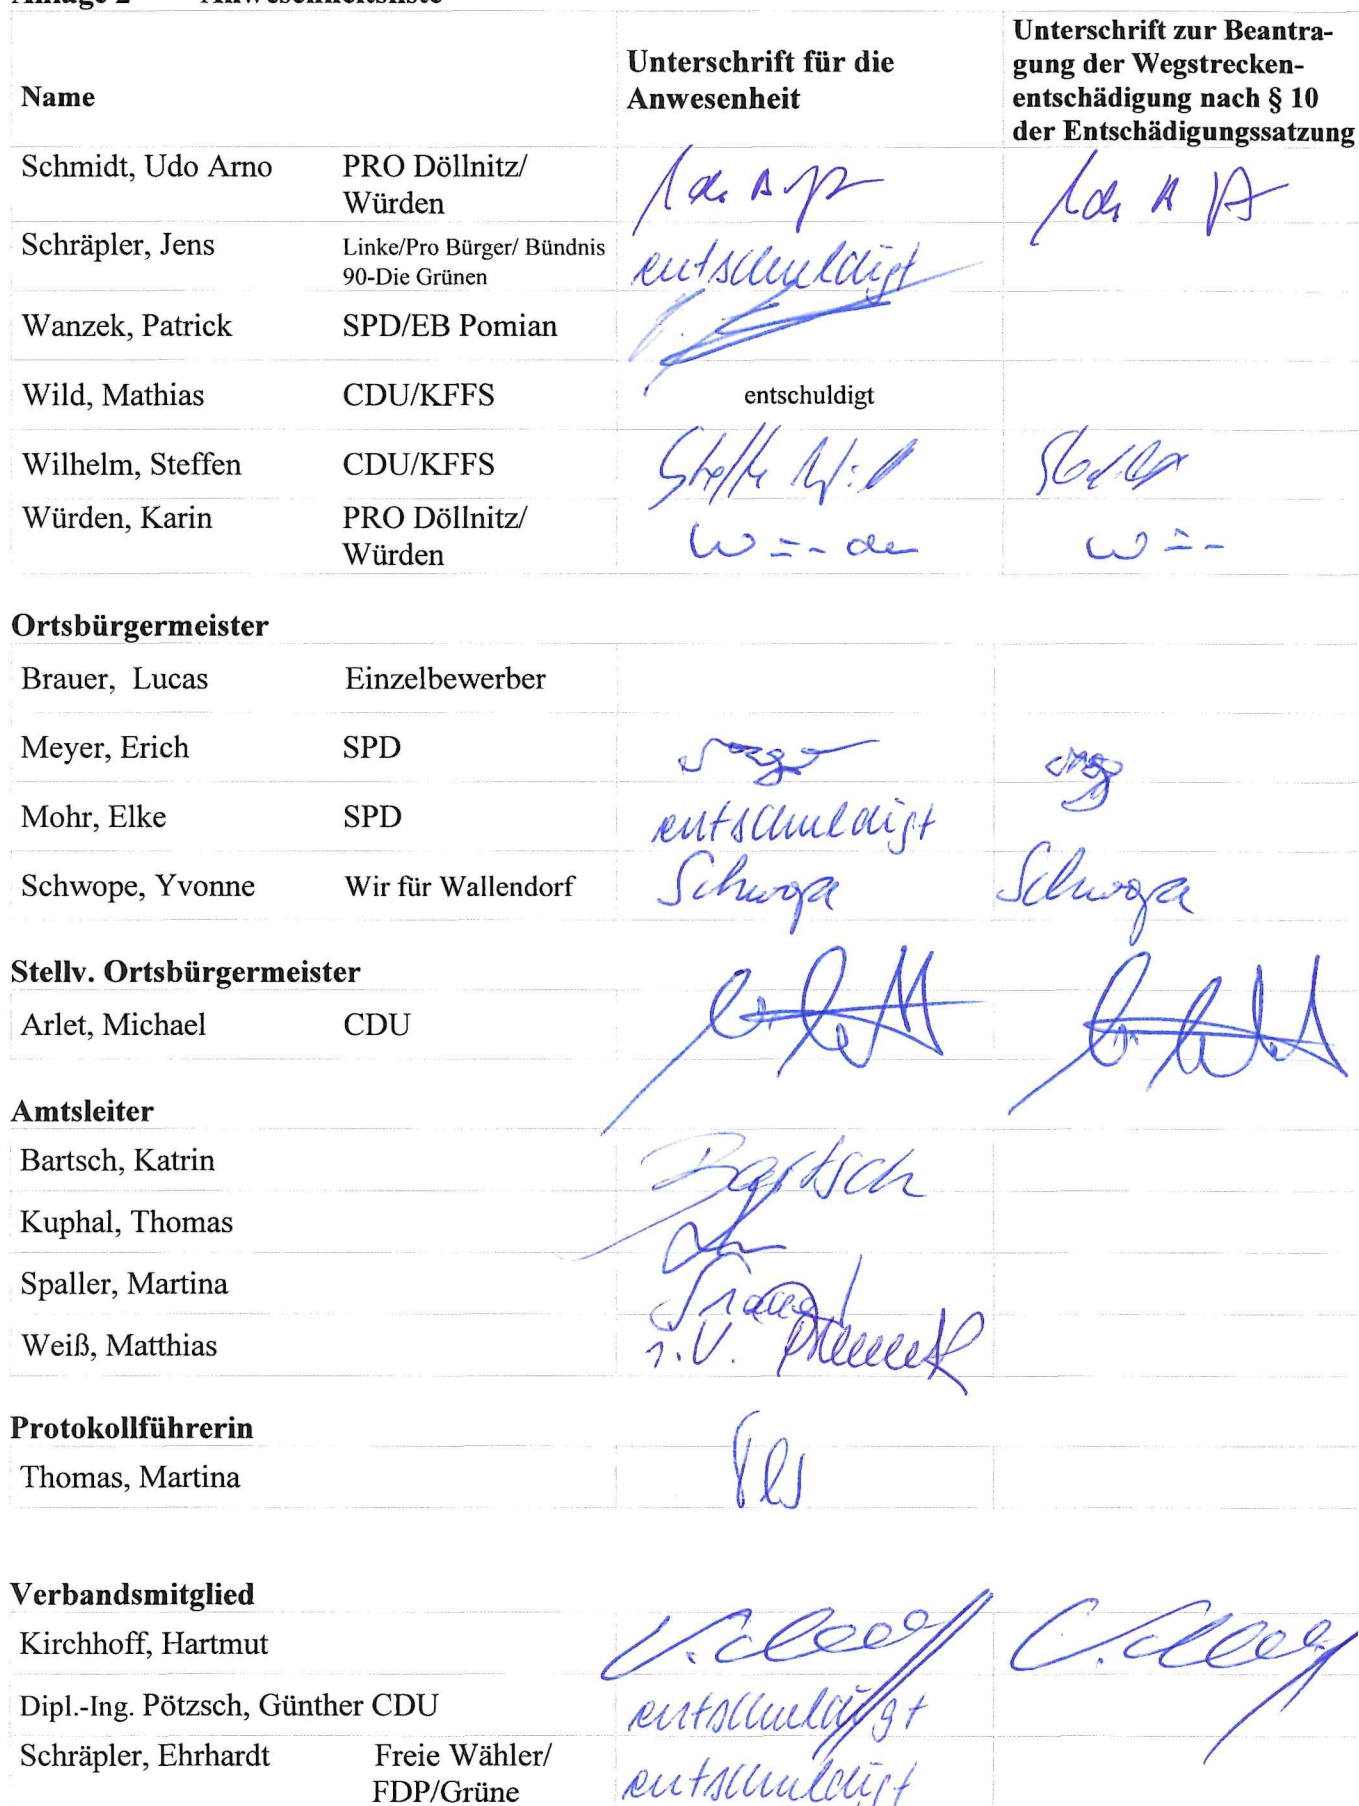 Anlage 2 Anwesenheitsliste
Name
Unterschrift für die
Anwesenheit
Unterschrift zur Beantra-
gung der Wegstrecken-
entschädigung nach § 10
der Entschädigungssatzung
Schmidt, Udo Arno PRO Döllnitz/
Würden
Schräpler, Jens Linke/Pro Bürger/ Bündnis entschuldigt
90-Die Grünen
Wanzek, Patrick SPD/EB Pomian
Wild, Mathias CDU/KFFS entschuldigt
Wilhelm, Steffen CDU/KFFS
Würden, Karin PRO Döllnitz/
Würden
Ortsbürgermeister
Brauer, Lucas Einzelbewerber
Meyer, Erich SPD
Mohr, Elke SPD entschuldigt
Schwope, Yvonne Wir für Wallendorf Schwope Schwope
Stellv. Ortsbürgermeister
Arlet, Michael CDU
Amtsleiter
Bartsch, Katrin Bartsch
Kuphal, Thomas
Spaller, Martina
Weiß, Matthias i.V.
Protokollführerin
Thomas, Martina
Verbandsmitglied
Kirchhoff, Hartmut
Dipl.-Ing. Pötzsch, Günther CDU entschuldigt
Schräpler, Ehrhardt Freie Wähler/ entschuldigt
FDP/Grüne